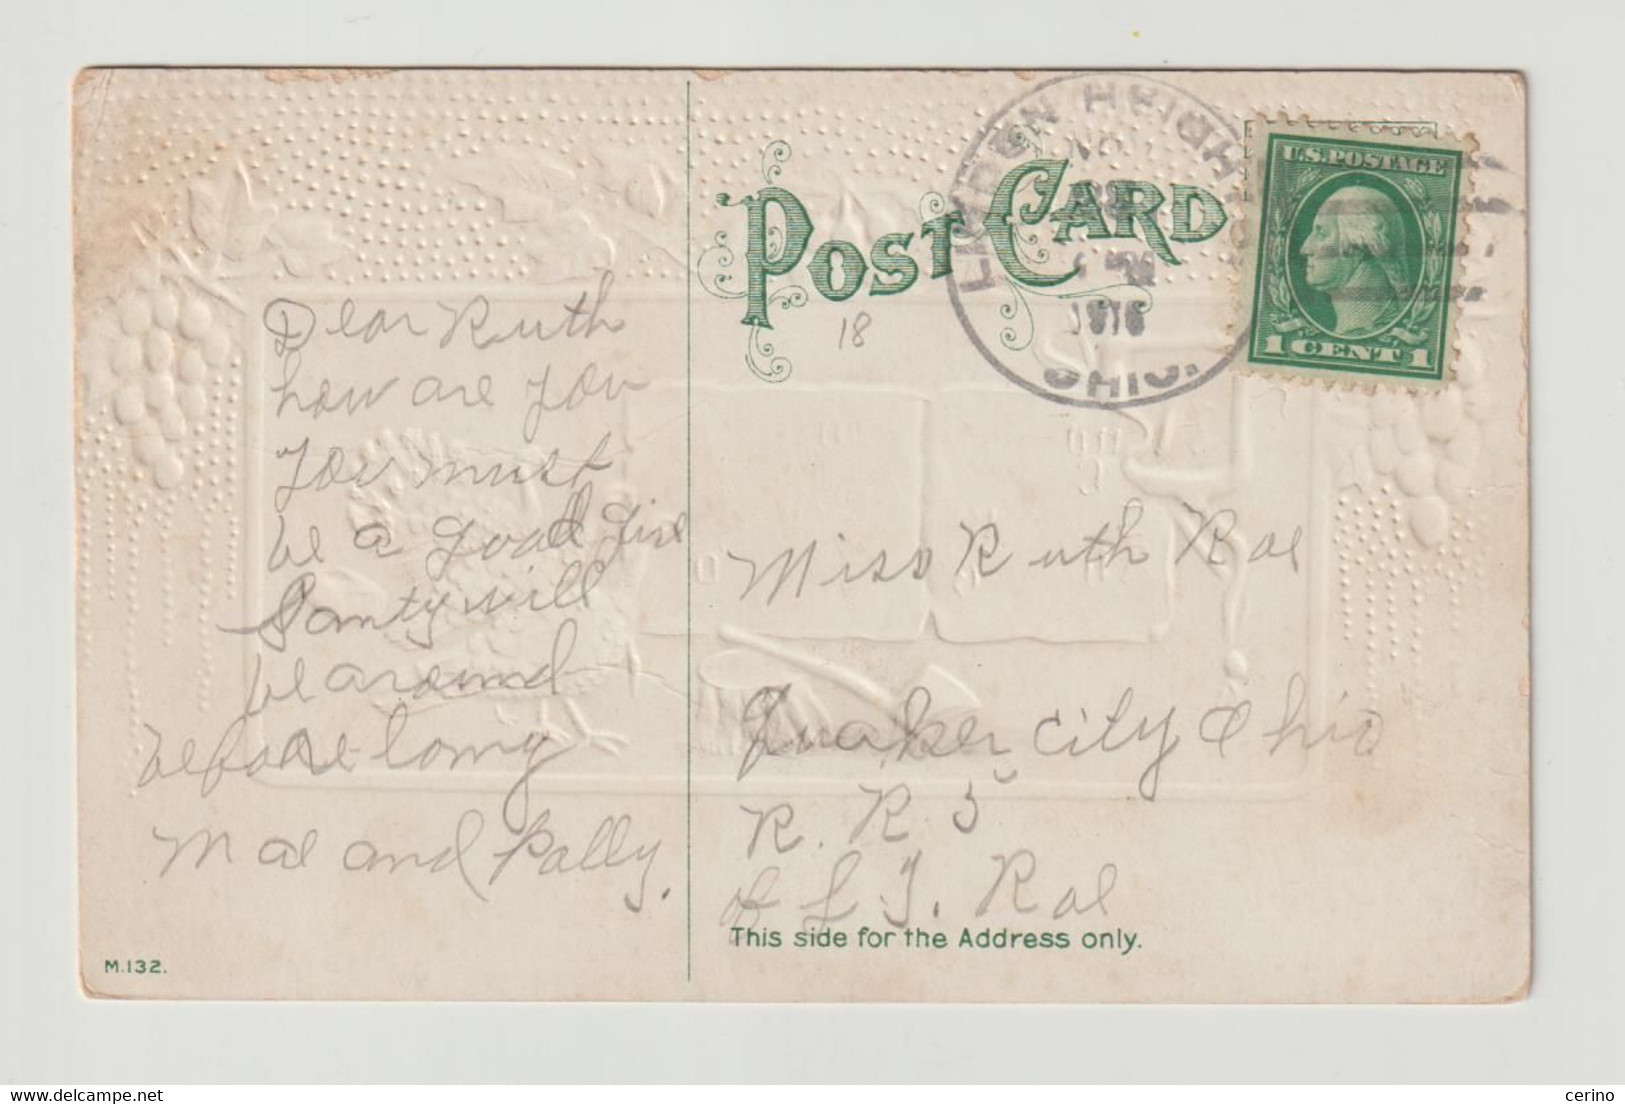 POST CARD
18
LINDEN HEIGHTS
NOV
1916
OHIO.
U.S. POSTAGE
1 CENT 1
Dear Ruth
how are you
You must
be a good Girl
Santy will
be around
before long
Mae and Polly.
Miss Ruth Rae
Quaker City Ohio
R. R. 5
of L. J. Rae
This side for the Address only.
M.132.
cerino